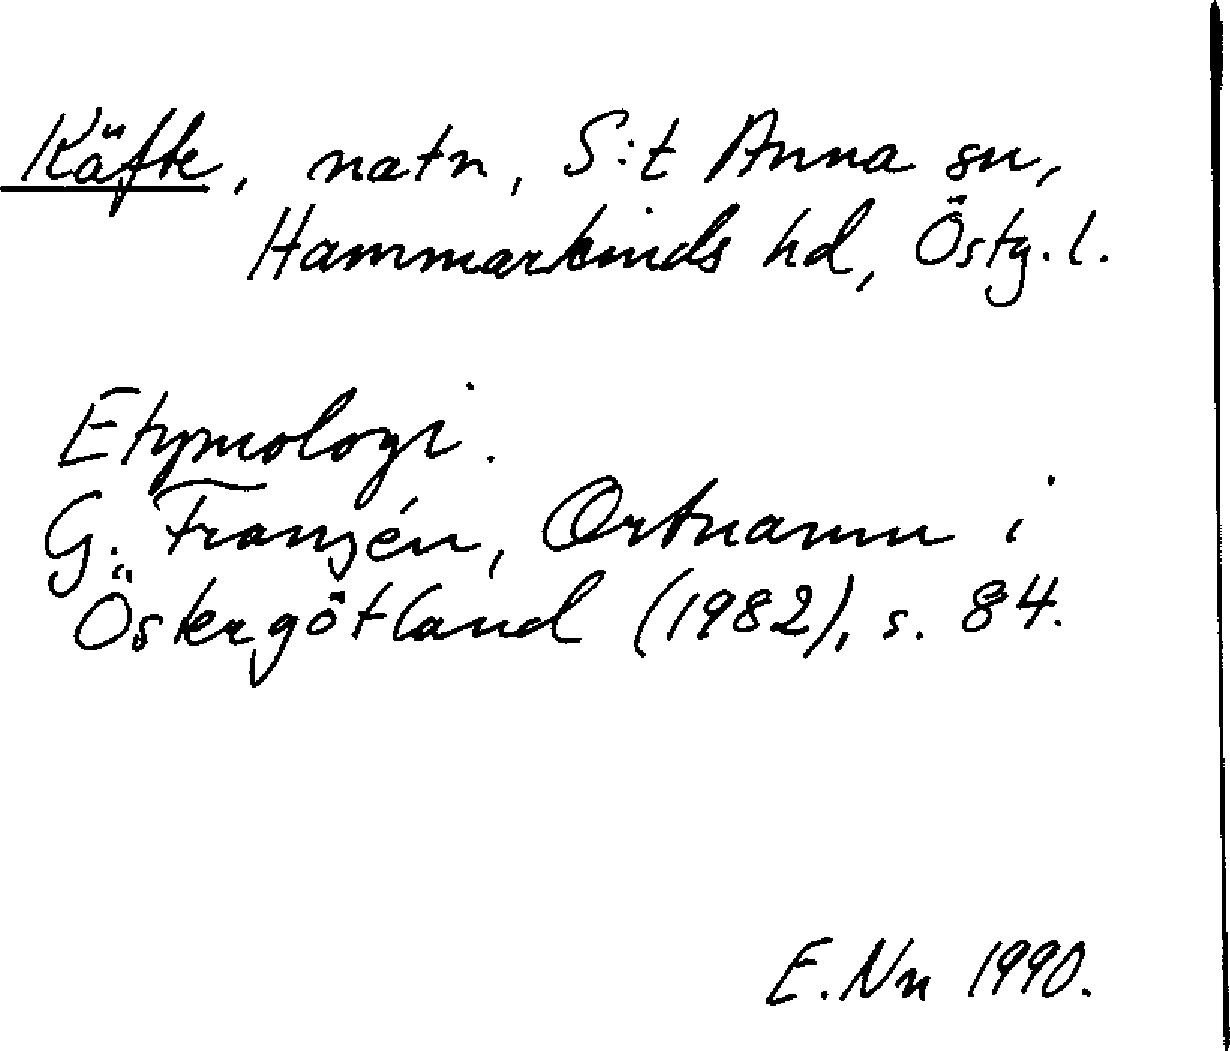 Käfte, natn, S:t Anna sn,
Hammarkinds hd, Östg.l.
Etymologi.
G. Franzén, Ortnamn i
Östergötland (1982), s. 84.
E. Nn 1990.